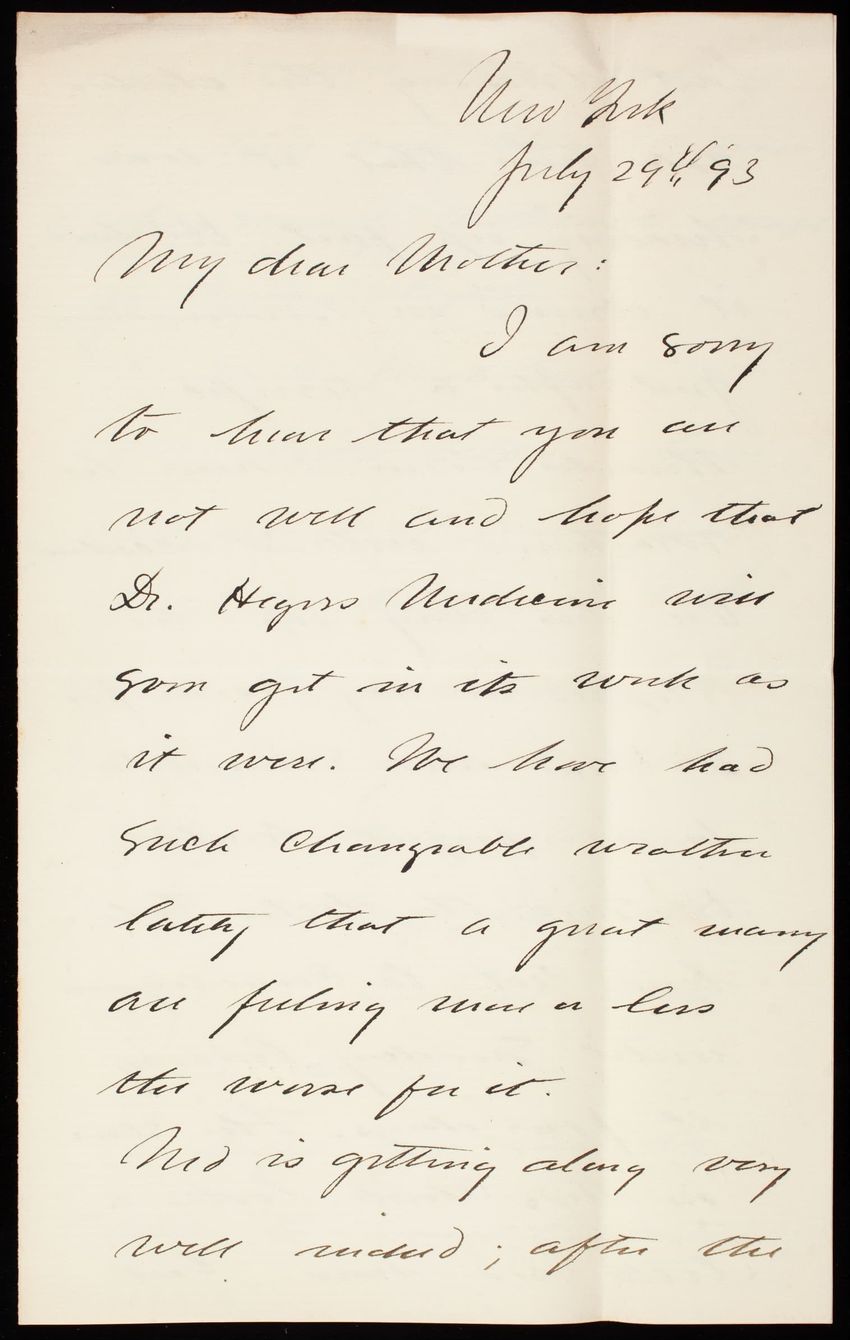 New York
July 29th '93
My dear Mother:
I am sorry
to hear that you are
not well and hope that
Dr. Medicine will
soon get in its work as
it were. We have had
such changeable weather
lately that a great many
are feeling more or less
the worse for it.
Ned is getting along very
well indeed; after the